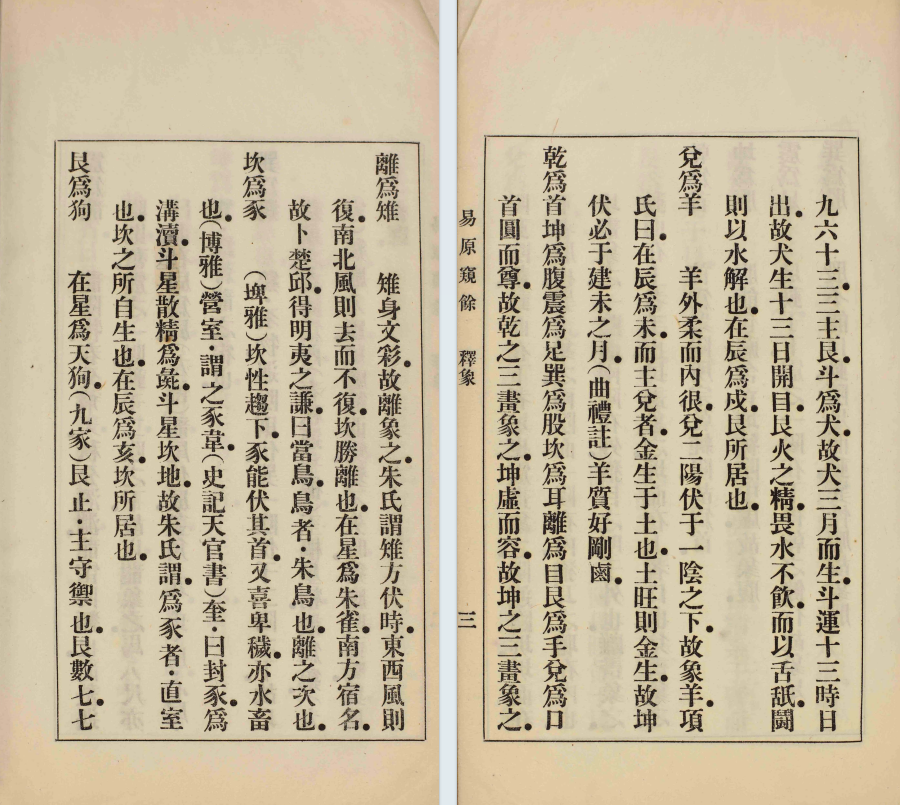 離爲雉　雉身文彩。故離象之。朱氏謂雉方伏時。東西風則
復。南北風則去而不復。坎勝離也。在星爲朱雀。南方宿名。
故卜楚邱。得明夷之謙。曰當鳥。鳥者．朱鳥也。離之次也。
坎爲豕　（埤雅）坎性趨下。豕能伏其首。又喜卑穢。亦水畜
也。（博雅）營室．謂之豕韋。（史記天官書）奎．曰封豕。爲
溝瀆。斗星散精爲彘。斗星坎地。故朱氏謂。爲豕者．直室
也。坎之所自生也。在辰爲亥。坎所居也。
艮爲狗　在星爲天狗。（九家）艮止．主守禦也。艮數七七
九六十三。三主艮。斗爲犬。故犬三月而生。斗運十三時日
出。故犬生十三日開目。艮火之精。畏水不飲。而以舌舐。鬭
則以水解也。在辰爲戌。艮所居也。
兌爲羊　羊外柔而內很。兌二陽伏于一陰之下。故象羊。項
氏曰。在辰爲未。而主兌者。金生于土也。土旺則金生。故坤
伏必于建未之月。（曲禮註）羊質好剛鹵。
乾爲首坤爲腹震爲足巽爲股坎爲耳離爲目艮爲手兌爲口
首圓而尊。故乾之三畫象之。坤虛而容。故坤之三畫象之。
易原窺餘　釋象　三